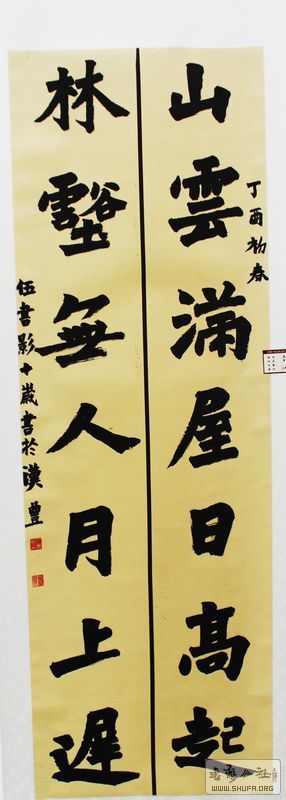 丁酉初春
山雲滿屋日高起
林壑無人月上遲
伍書影十歲書於漢豐
WWW.SHUFA.ORG